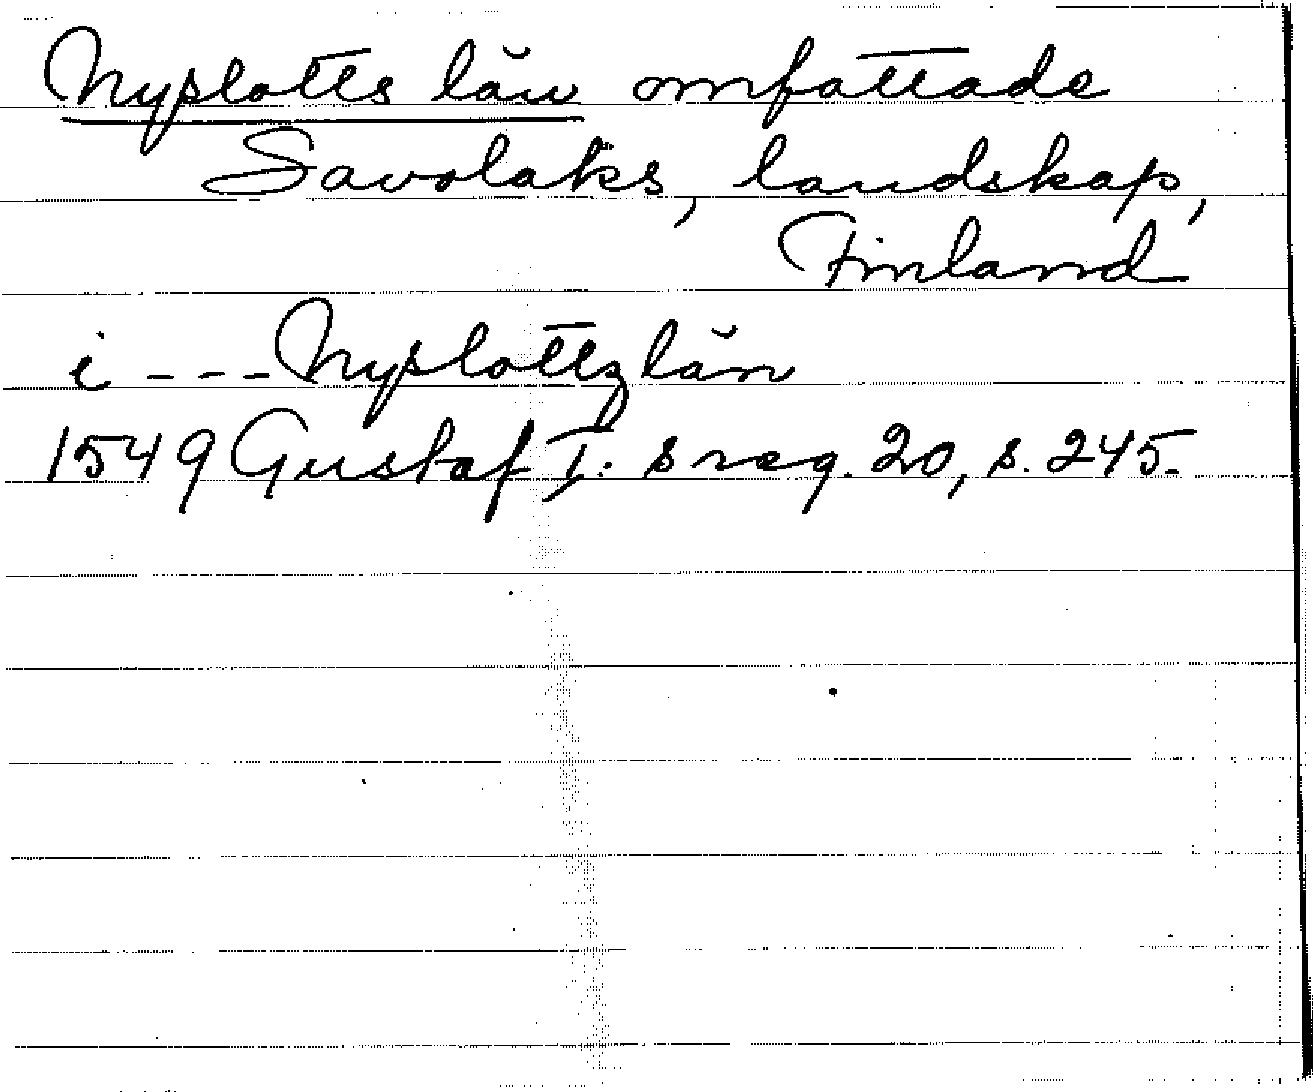 Nyslotts län omfattade
Savolaks, landskap,
Finland
i --- Nyslottz län
1549 Gustaf I:s reg. 20, s. 245.